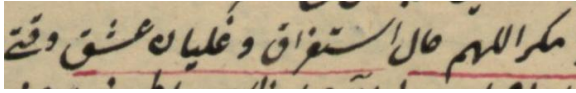 مکر اللهم حال استغراق و غلیان عشق وقتی